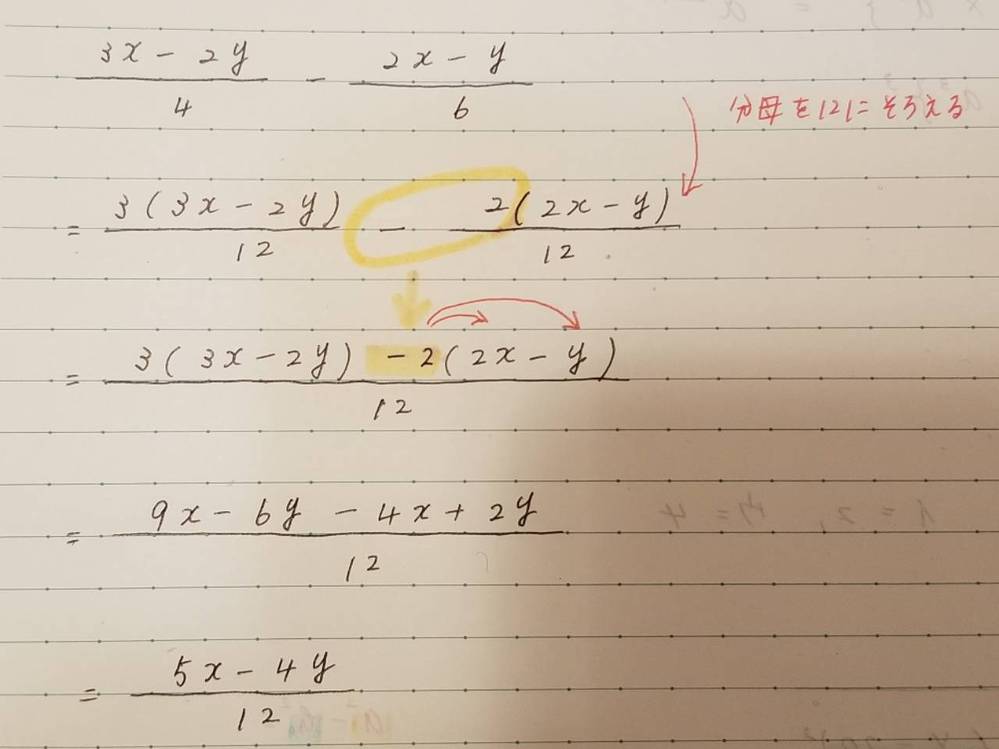 (3x - 2y)/4 - (2x - y)/6
分母を12にそろえる
= 3(3x - 2y)/12 - 2(2x - y)/12
= (3(3x - 2y) - 2(2x - y))/12
= (9x - 6y - 4x + 2y)/12
= (5x - 4y)/12